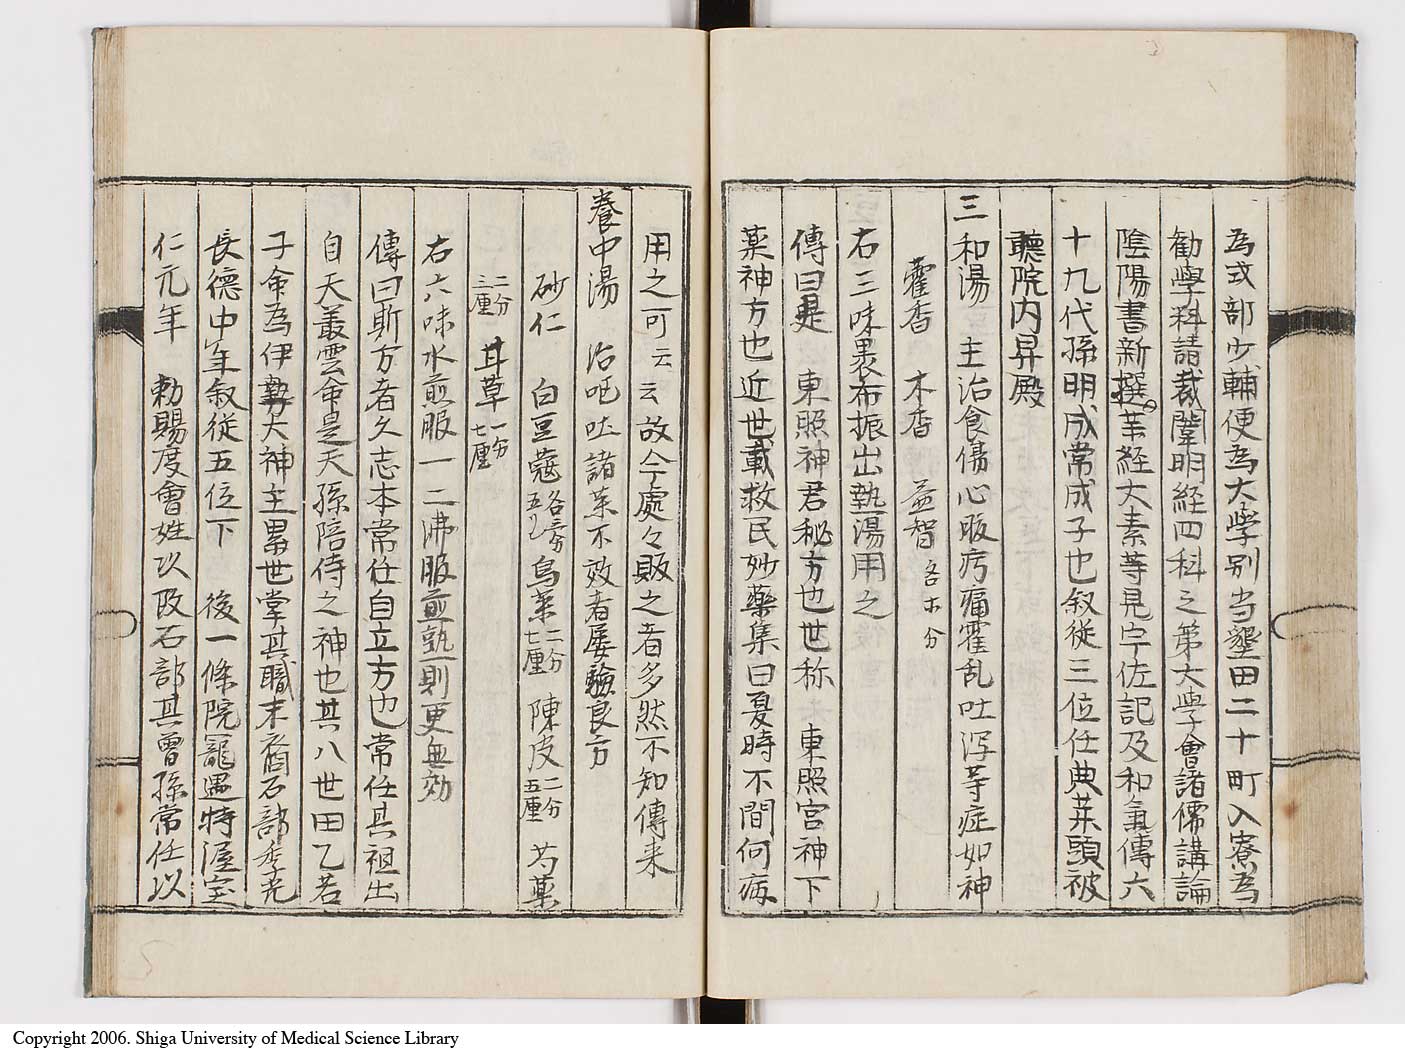 為式部少輔便為大學別当墾田二十町入寮為
勧學科請裁闡明經四科之第大學會諸儒講論
陰陽書新撰薬経大素等見宇佐記及和氣傳六
十九代孫明成常成子也叙従三位任典薬頭被
聽院内昇殿
三和湯 主治食傷心腹疞痛霍乱吐瀉等症如神
藿香 木香 益智各等分
右三味裹布振出熱湯用之
傳曰是 東照神君秘方也世称 東照宮神下
薬神方也近世載救民妙藥集曰夏時不間何病
用之可云云故今處々販之者多然不知傳来
養中湯 治嘔吐諸薬不效者屡驗良方
砂仁 白豆蔲各六分五り 烏薬二分七厘 陳皮二分五厘 芍薬
二分三厘 甘草一分七厘
右六味水煎服一二沸服煎熟則更無効
傳曰斯方者久志本常任自立方也常任其祖出
自天叢雲命是天孫陪侍之神也其八世田乙若
子命為伊勢大神主累世掌其職末裔石部季光
長德中年叙従五位下 後一條院寵遇特渥宝
仁元年 勅賜度會姓以改石部其曾孫常任以
Copyright 2006. Shiga University of Medical Science Library